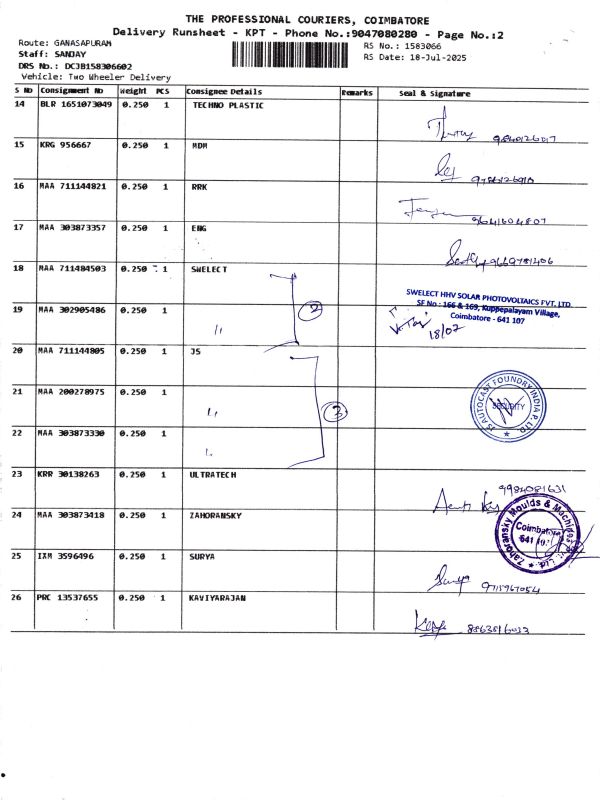 THE PROFESSIONAL COURIERS, COIMBATORE
Delivery Runsheet - KPT - Phone No.:9047080280 - Page No.:2
Route: GANASAPURAM
Staff: SANJAY
DRS No.: DCJB158306602
Vehicle: Two Wheeler Delivery
RS No.: 1583066
RS Date: 18-Jul-2025
S No Consignment No Weight PCS Consignee Details Remarks Seal & Signature
14 BLR 1651073049 0.250 1 TECHNO PLASTIC
15 KRG 956667 0.250 1 MDM
16 MAA 711144821 0.250 1 RRK
9641604807
17 MAA 303873357 0.250 1 ENG
9669781406
18 MAA 711484503 0.250 1 SWELECT
SWELECT HHV SOLAR PHOTOVOLTAICS PVT. LTD.
SF No : 166 & 169, Kuppepalayam Village,
Coimbatore - 641 107
19 MAA 302905486 0.250 1 "
2
18/07
20 MAA 711144805 0.250 1 JS
21 MAA 200278975 0.250 1 "
3
JS AUTOCAST FOUNDRY INDIA P. LTD
SECURITY
22 MAA 303873330 0.250 1 "
23 KRR 30138263 0.250 1 ULTRATECH
9984081631
24 MAA 303873418 0.250 1 ZAHORANSKY
Zahoransky Moulds & Machines Pvt. Ltd.
Coimbatore
641 107
25 IXM 3596496 0.250 1 SURYA
9715967054
26 PRC 13537655 0.250 1 KAVIYARAJAN